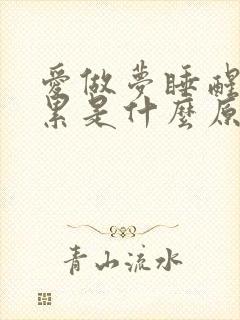 愛做夢睡醒
累是什麼原
青山流水